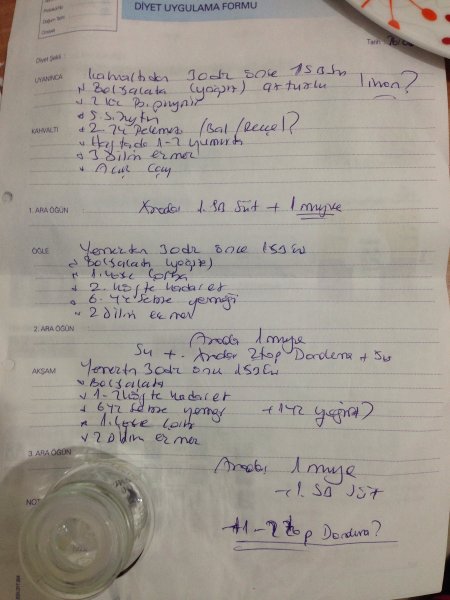 DİYET UYGULAMA FORMU
Tarih:
Diyet Şekli :
UYANINCA
kahvaltıdan 30dk önce 1SBSu
Bolsalata (yağsız) limon?
2 kk B.peynir
5.s.zeytin
KAHVALTI
2.tk Pekmez /Bal/reçel?
Haftada 1-2 yumurta
3 dilim ekmek
Açık Çay
1. ARA ÖĞÜN
Arada 1.SB Süt + 1 meyve
ÖĞLE
Yemekten 30dk önce 1SBSu
Bolsalata (yağsız)
1.kase Çorba
2.köfte kadar et
6.yk Sebze yemeği
2 dilim ekmek
2. ARA ÖĞÜN
Arada 1 meyve
Su + Arada 2top Dondurma + Su
AKŞAM
Yemekten 30dk önce 1SBSu
Bolsalata
1-2 köfte kadar et
6yk Sebze yemeği +1yk yoğurt?
1.kase Çorba
2 dilim ekmek
3. ARA ÖĞÜN
Arada 1 meyve
1. SB Süt
NOT
+1-2 top Dondurma?